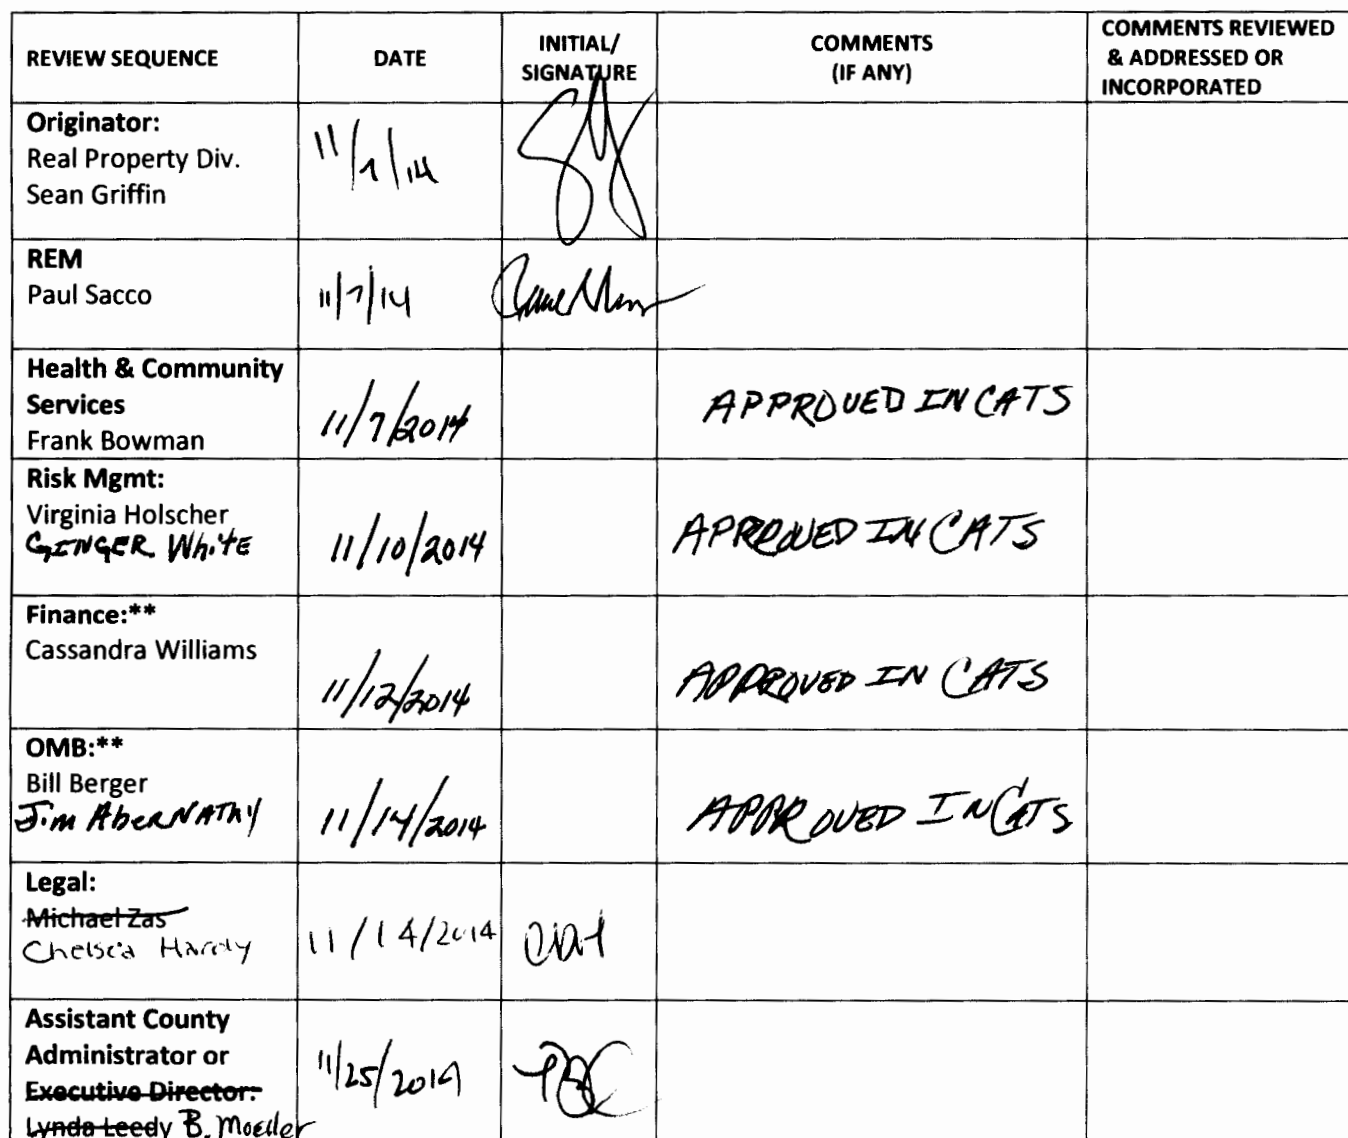 REVIEW SEQUENCE
DATE
INITIAL/
SIGNATURE
COMMENTS
(IF ANY)
COMMENTS REVIEWED
& ADDRESSED OR
INCORPORATED
Originator:
Real Property Div.
Sean Griffin
11/7/14
REM
Paul Sacco
11/7/14
Health & Community
Services
Frank Bowman
11/7/2014
APPROVED IN CATS
Risk Mgmt:
Virginia Holscher
GINGER White
11/10/2014
APPROVED IN CATS
Finance:**
Cassandra Williams
11/12/2014
APPROVED IN CATS
OMB:**
Bill Berger
Jim AberNAThy
11/14/2014
APPROVED IN CATS
Legal:
Michael Zas
Chelsea Hardy
11/14/2014
Assistant County
Administrator or
Executive Director:
Lynda Leedy B. Moeller
11/25/2014